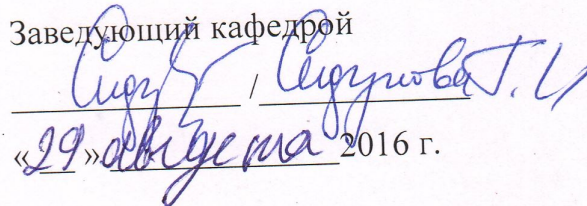 Заведующий кафедрой
/ Сидунова Г. И
« 29 » августа 2016 г.